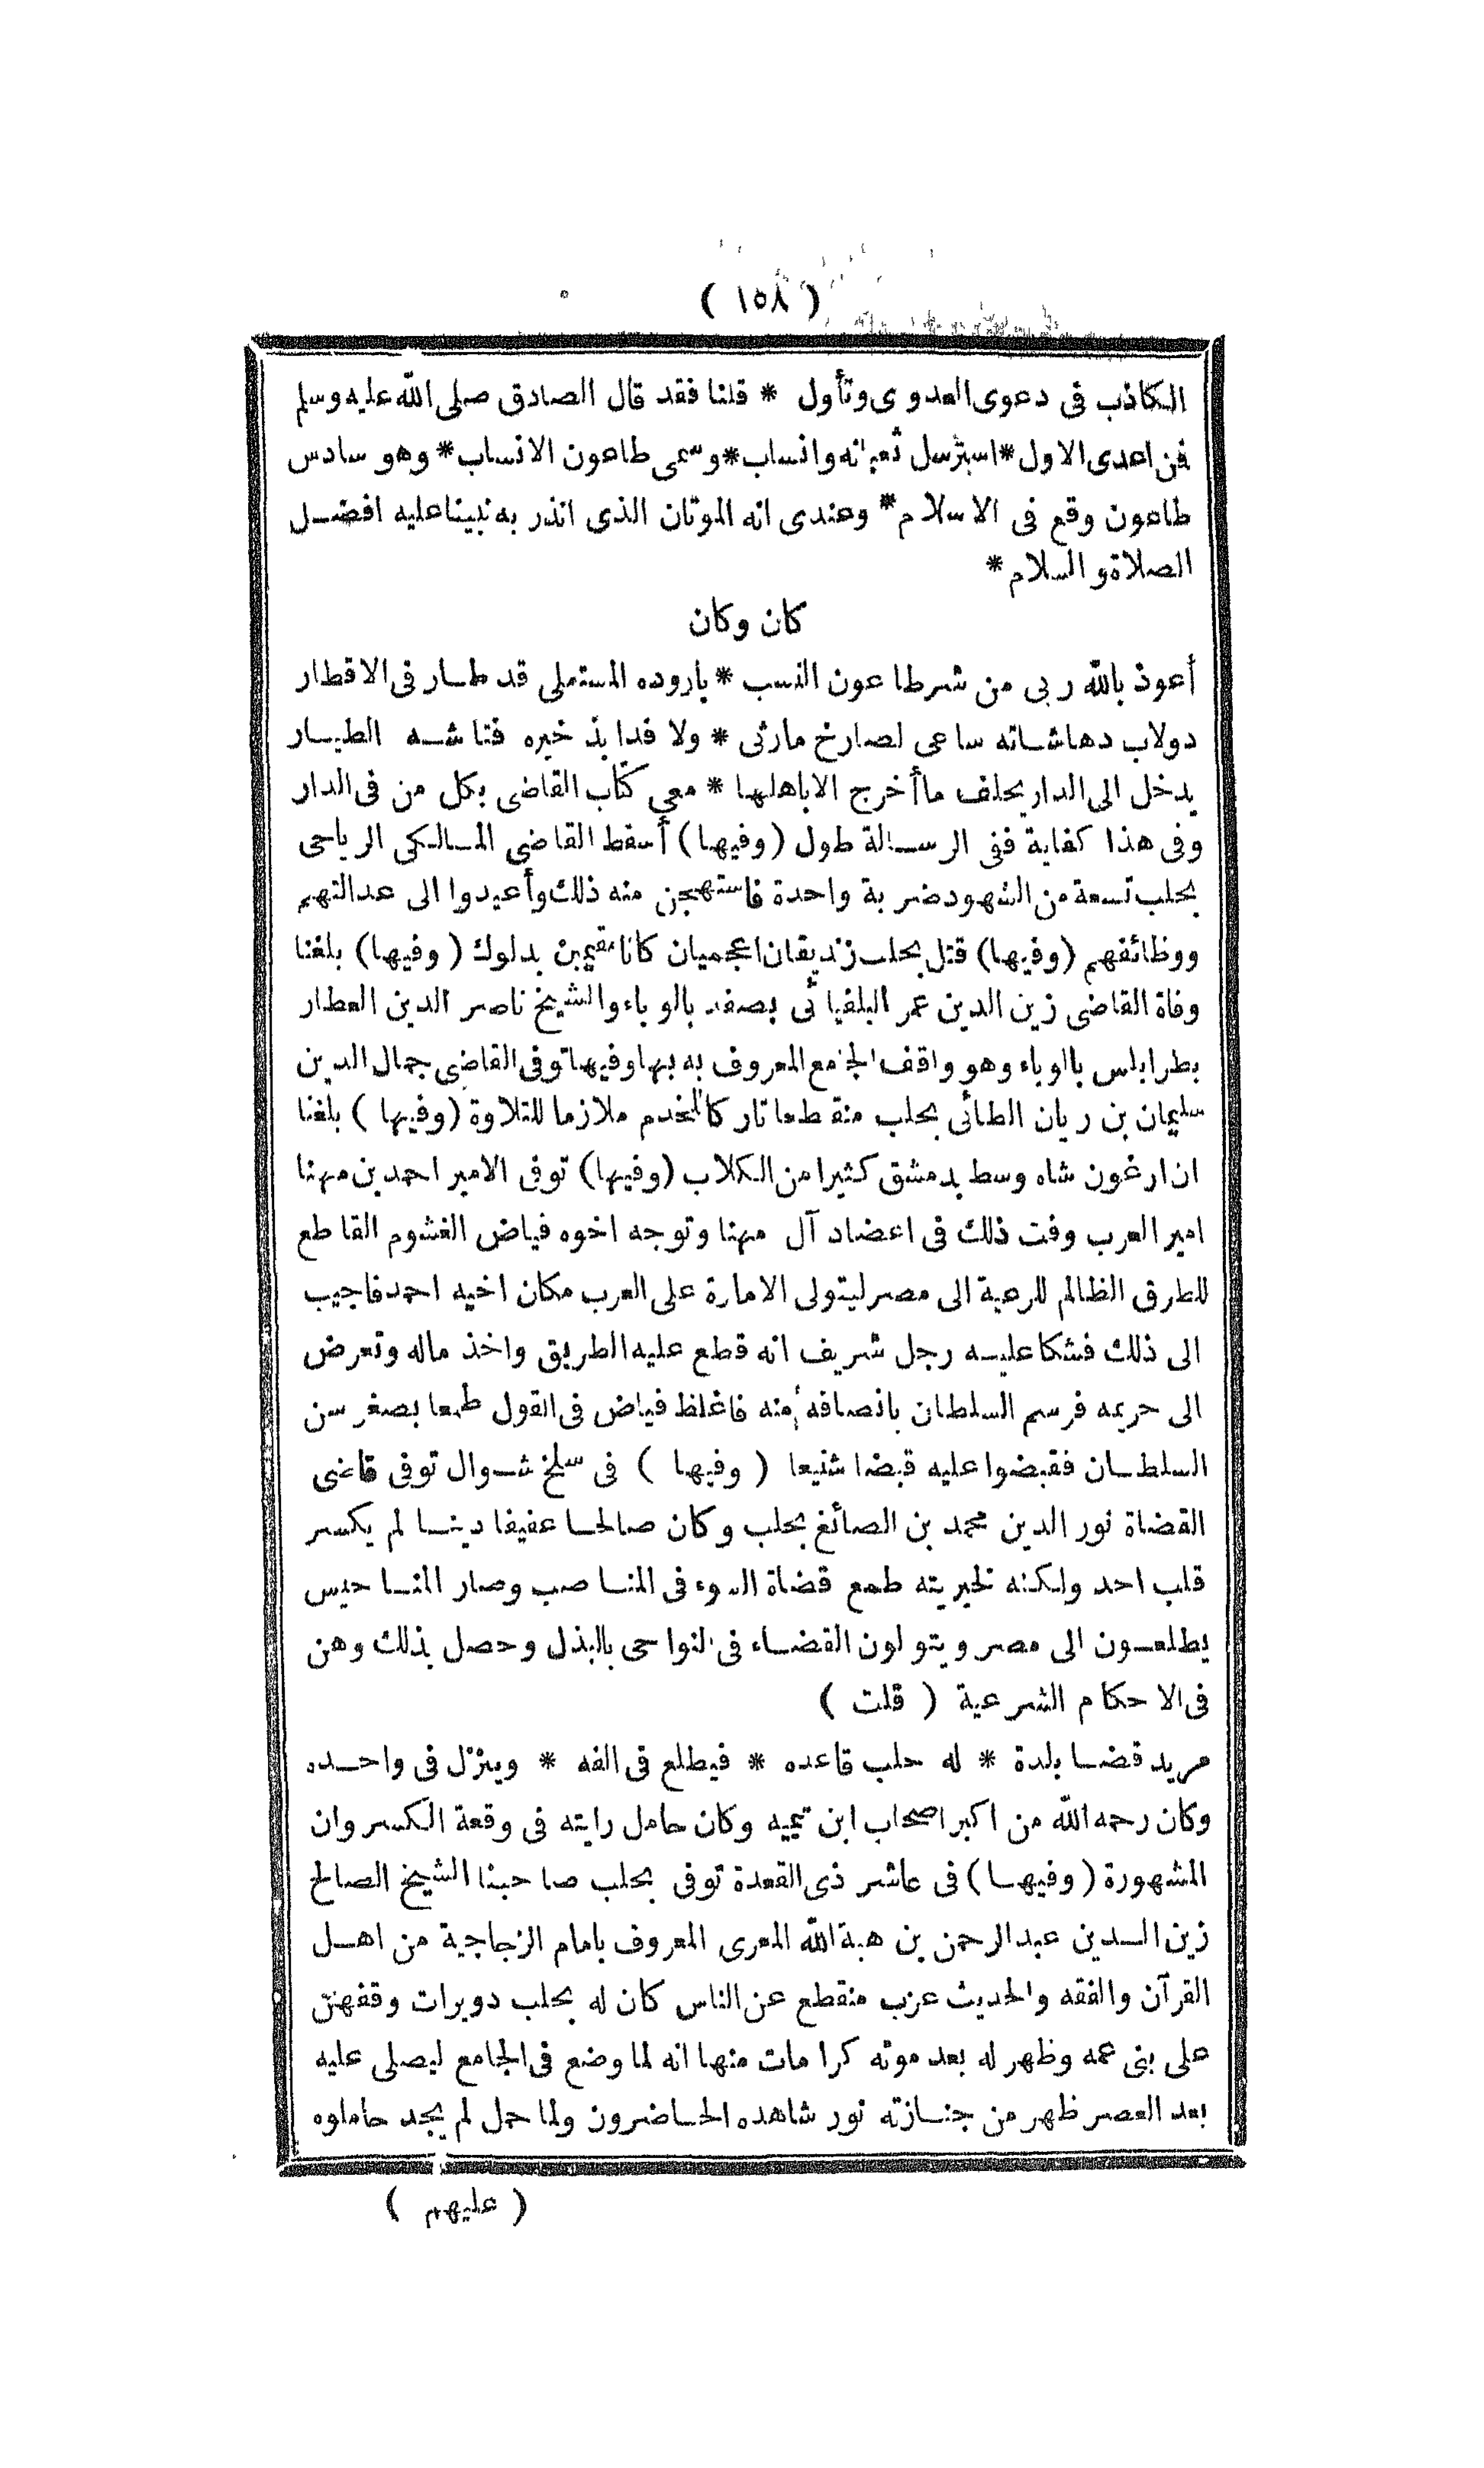 ( ١٥٨ )
الكاذب فى دعوى العدوى وتأول * قلنا فقد قال الصادق صلى الله عليه وسلم
فمن اعدى الاول * استرسل ثعبانه وانساب * وسمى طاعون الانساب * وهو سادس
طاعون وقع فى الاسلام * وعندى انه الموتان الذى انذر به نبينا عليه افضل
الصلاة والسلام *
كان وكان
أعوذ بالله ربى من شر طاعون النسب * باروده المستعلى قد طار فى الاقطار
دولاب دهاشاته ساعى لصارخ مارثى * ولا فدا بذخيره فتاشه الطيار
يدخل الى الدار يحلف ما أخرج الا باهلها * معى كتاب القاضى بكل من فى الدار
وفى هذا كفاية ففى الرسالة طول ( وفيها ) أسقط القاضى المالكى الرياحى
بحلب تسعة من الشهود ضربة واحدة فاستهجن منه ذلك وأعيدوا الى عدالتهم
ووظائفهم ( وفيها ) قتل بحلب زنديقان اعجميان كانا مقيمين بدلوك ( وفيها ) بلغنا
وفاة القاضى زين الدين عمر البلفيائى بصفد بالوباء والشيخ ناصر الدين العطار
بطرابلس بالوباء وهو واقف الجامع المعروف به بها وفيها توفى القاضى جمال الدين
سليمان بن ريان الطائى بحلب منقطعا تاركا للخدم ملازما للتلاوة ( وفيها ) بلغنا
ان ارغون شاه وسط بدمشق كثيرا من الكلاب ( وفيها ) توفى الامير احمد بن مهنا
امير العرب وفت ذلك فى اعضاد آل مهنا وتوجه اخوه فياض الغشوم القاطع
للطرق الظالم للرعية الى مصر ليتولى الامارة على العرب مكان اخيه احمد فاجيب
الى ذلك فشكا عليه رجل شريف انه قطع عليه الطريق واخذ ماله وتعرض
الى حريمه فرسم السلطان بانصافه منه فاغلظ فياض فى القول طمعا بصغر سن
السلطان فقبضوا عليه قبضا شنيعا ( وفيها ) فى سلخ شوال توفى قاضى
القضاة نور الدين محمد بن الصائغ بحلب وكان صالحا عفيفا دينا لم يكسر
قلب احد ولكنه لخيريته طمع قضاة السوء فى المناصب وصار المناحيس
يطلعون الى مصر ويتولون القضاء فى النواحى بالبذل وحصل بذلك وهن
فى الاحكام الشرعية ( قلت )
مريد قضا بلدة * له حلب قاعده * فيطلع فى الفه * وينزل فى واحده
وكان رحمه الله من اكبر اصحاب ابن تيميه وكان حامل رايته فى وقعة الكسروان
المشهورة ( وفيها ) فى عاشر ذى القعدة توفى بحلب صاحبنا الشيخ الصالح
زين الدين عبد الرحمن بن هبة الله المعرى المعروف بامام الزجاجية من اهل
القرآن والفقه والحديث عزب منقطع عن الناس كان له بحلب دويرات وقفهن
على بنى عمه وظهر له بعد موته كرامات منها انه لما وضع فى الجامع ليصلى عليه
بعد العصر ظهر من جنازته نور شاهده الحاضرون ولما حمل لم يجد حاملوه
( عليهم )